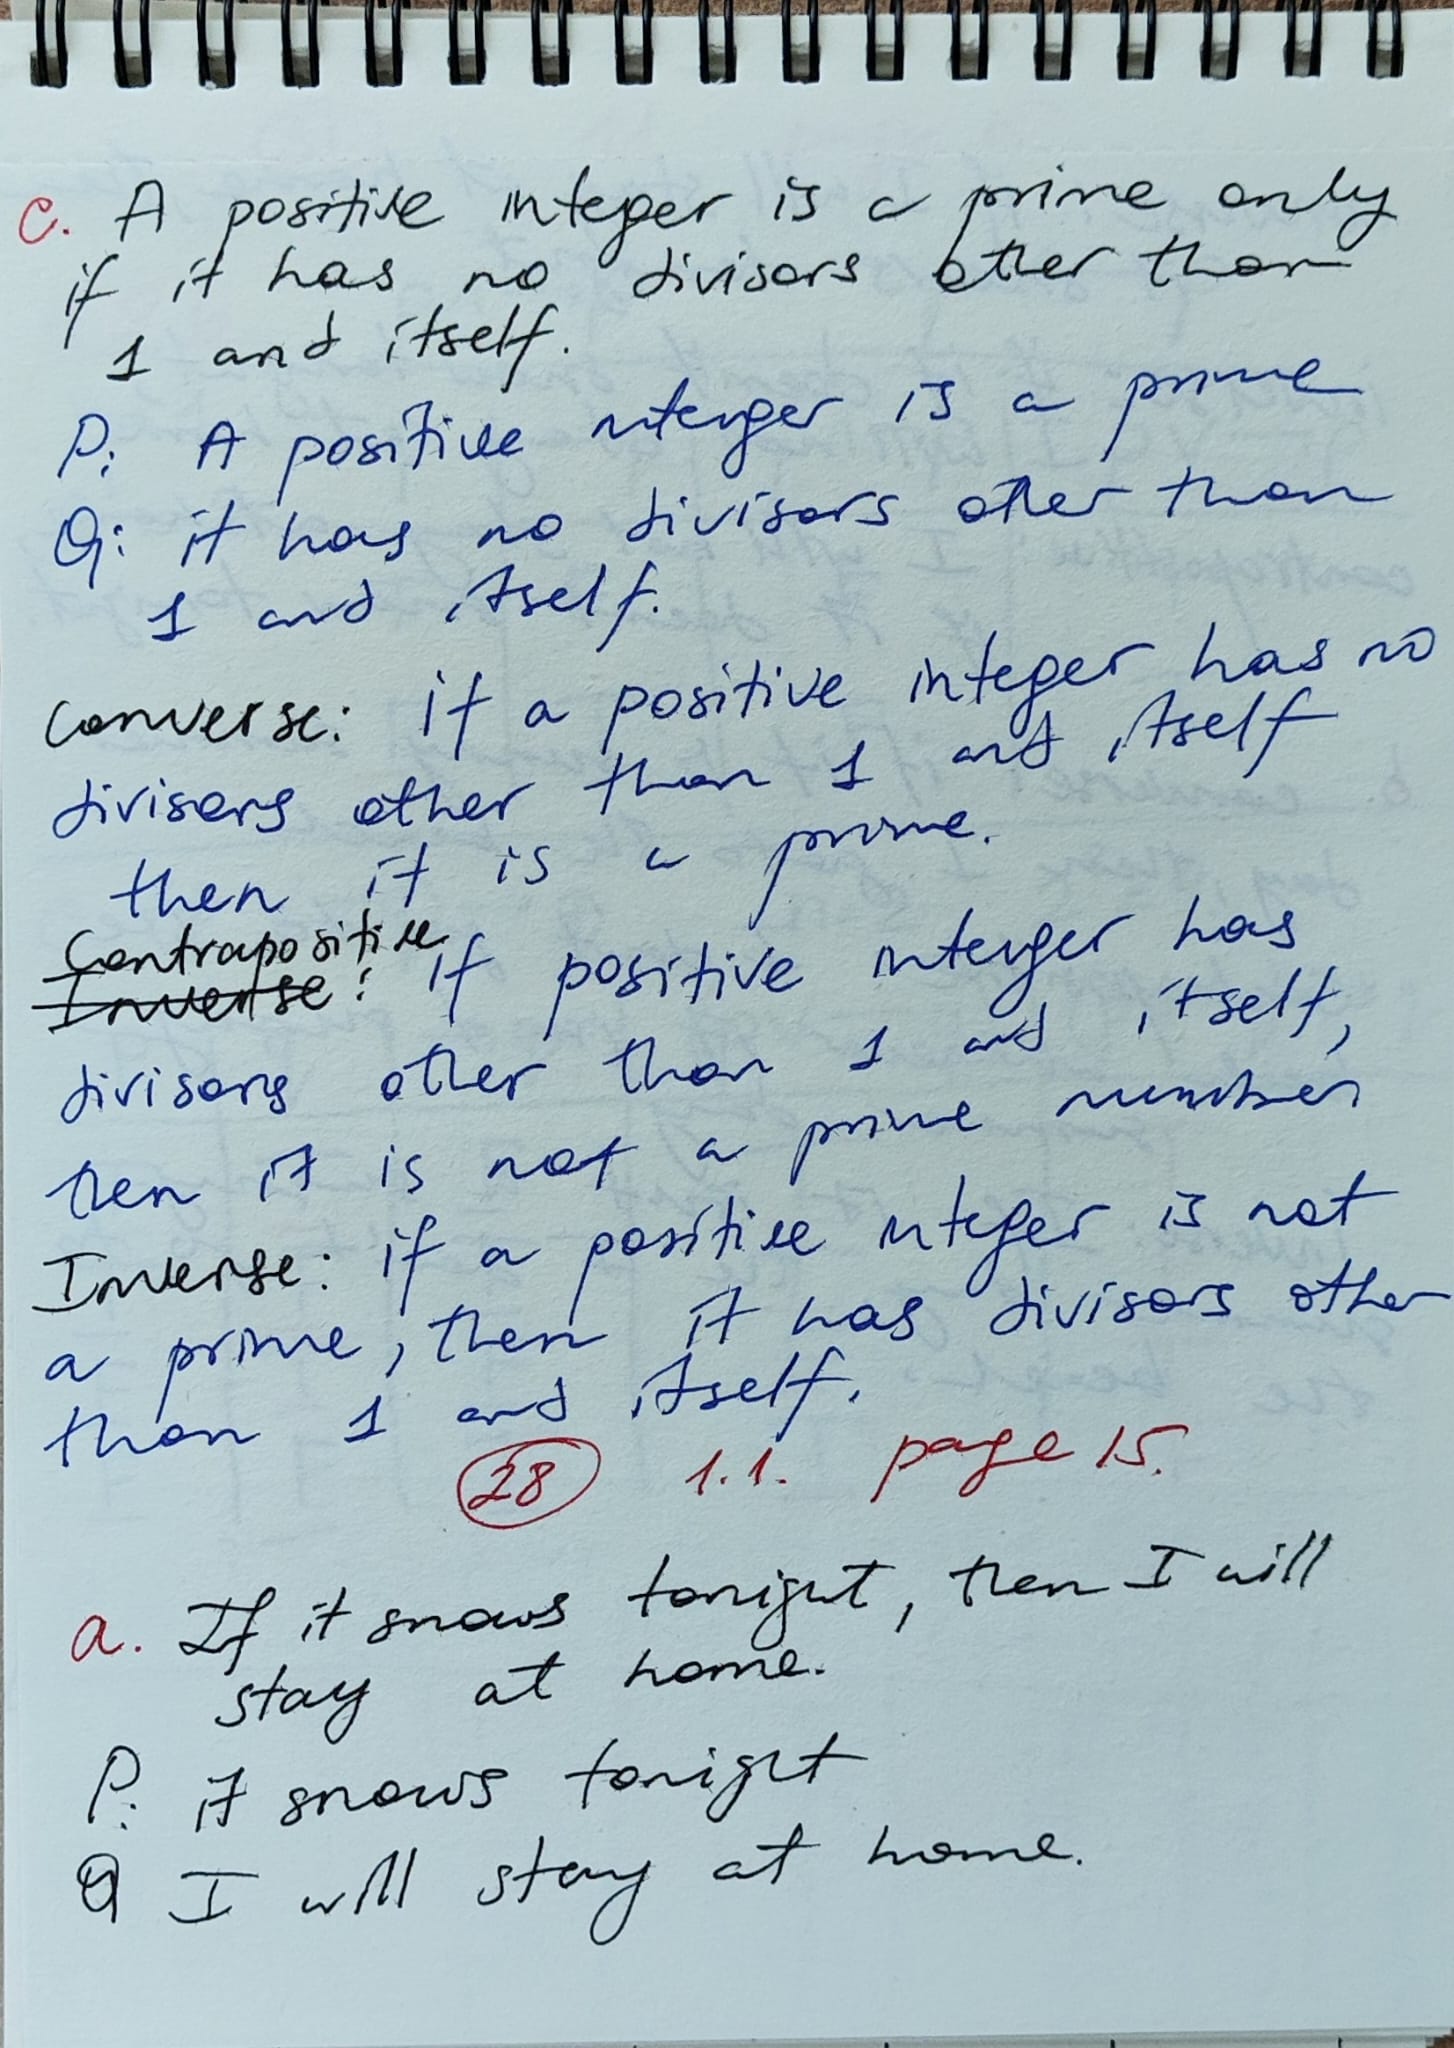 c. A positive integer is a prime only
if it has no divisors other than
1 and itself.
P: A positive interger is a prime
Q: it has no divisors other than
1 and itself.
Converse: if a positive integer has no
divisors other than 1 and itself
then it is a prime.
Contrapositive
Inverse: if positive interger has
divisors other than 1 and itself,
then it is not a prime number
Inverse: if a positive integer is not
a prime, then it has divisors other
than 1 and itself.
28 1.1. page 15.
a. If it snows tonight, then I will
stay at home.
P: it snows tonight
Q I will stay at home.